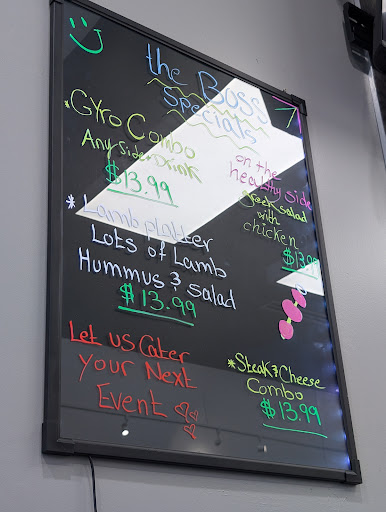 the BOSS
specials
*Gyro Combo
Any side + Drink
$13.99
* Lamb platter
Lots of Lamb
Hummus & Salad
$13.99
Let us Cater
your Next
Event
on the
healthy side
greek salad
with
chicken
$13.99
*Steak & Cheese
Combo
$13.99